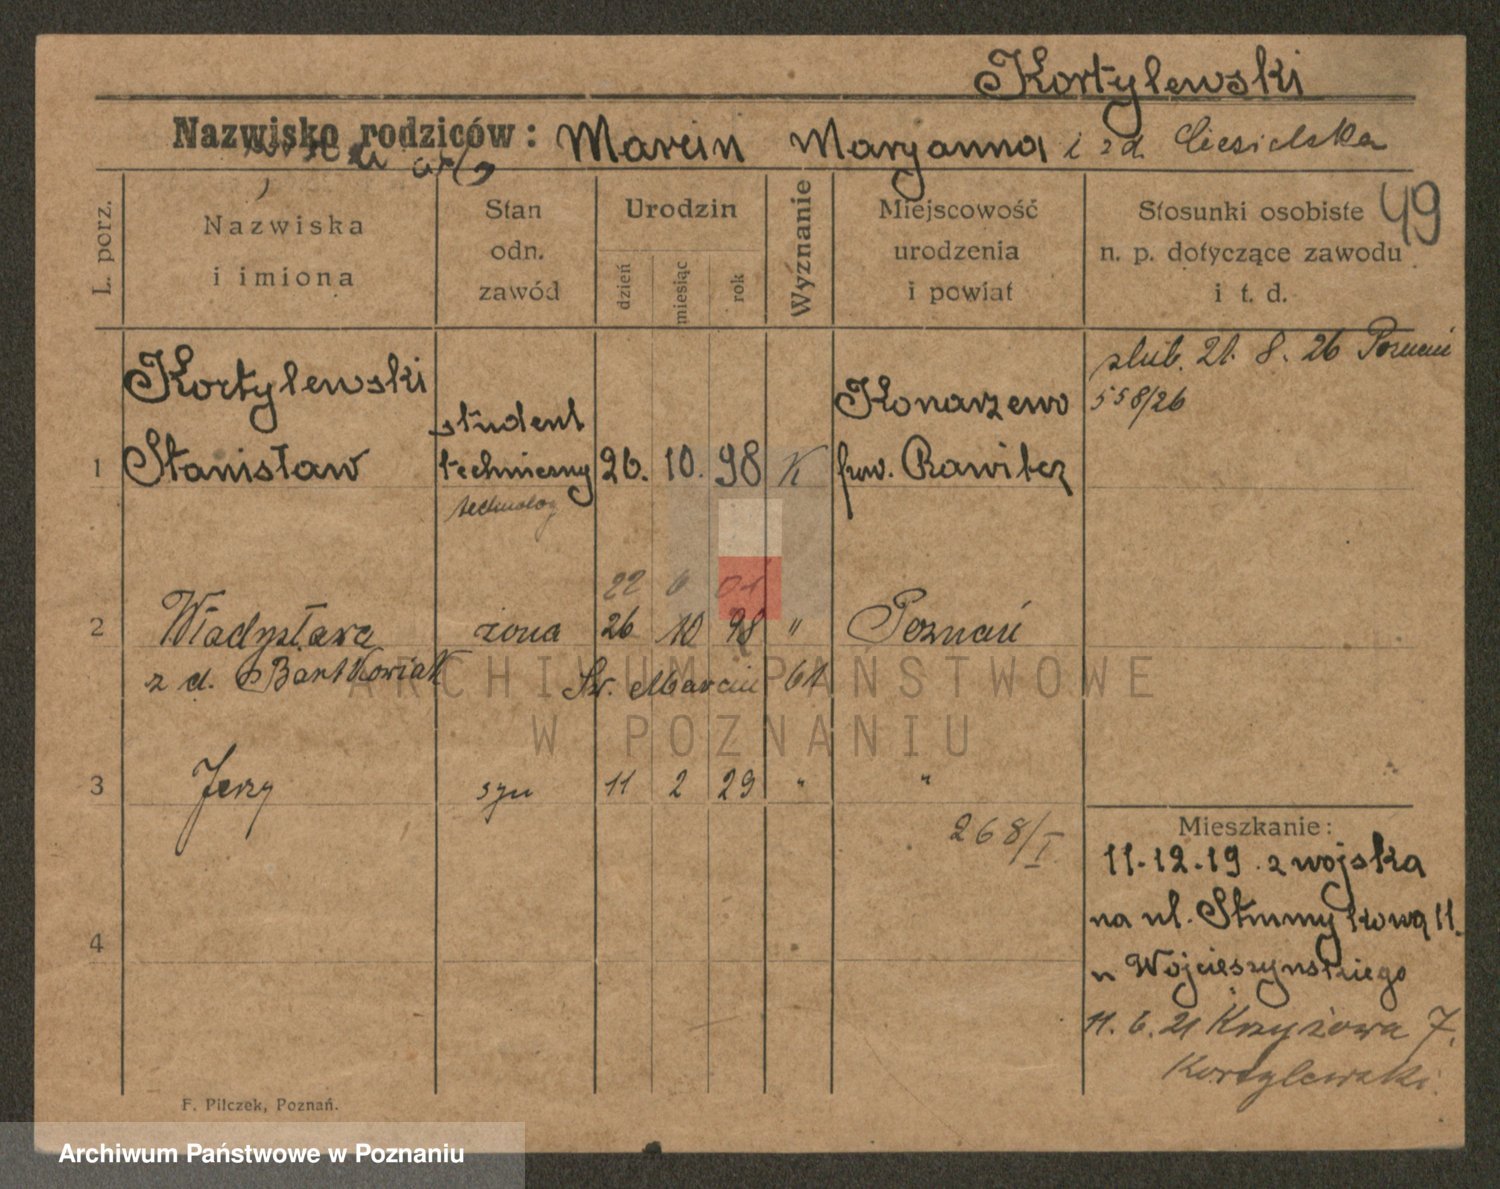 Kortylewski
Nazwisko rodziców: Marcin Maryanna i z d. Ciesielska
49
L. porz.
Nazwiska
i imiona
Stan
odn.
zawód
Urodzin
dzień
miesiąc
rok
Wyznanie
Miejscowość
urodzenia
i powiat
Stosunki osobiste
n. p. dotyczące zawodu
i t. d.
ślub. 21. 8. 26 Poznań
558/26
1
Kortylewski
Stanisław
student
techniczny
technolog
26. 10. 98
K
Konarzewo
pow. Rawicz
2
Władysława
z d. Bartkowiak
żona
22 6 01
26 10 98
"
Poznań
Św. Marcin 61
3
Jerzy
syn
11 2 29
"
"
268/I
4
Mieszkanie:
11-12-19. z wojska
na ul. Strumykowa 11.
u Wojcieszyńskiego
11. 6. 21 Krzyżowa 7.
Kortylewski.
F. Pilczek, Poznań.
ARCHIWUM PAŃSTWOWE
W POZNANIU
Archiwum Państwowe w Poznaniu